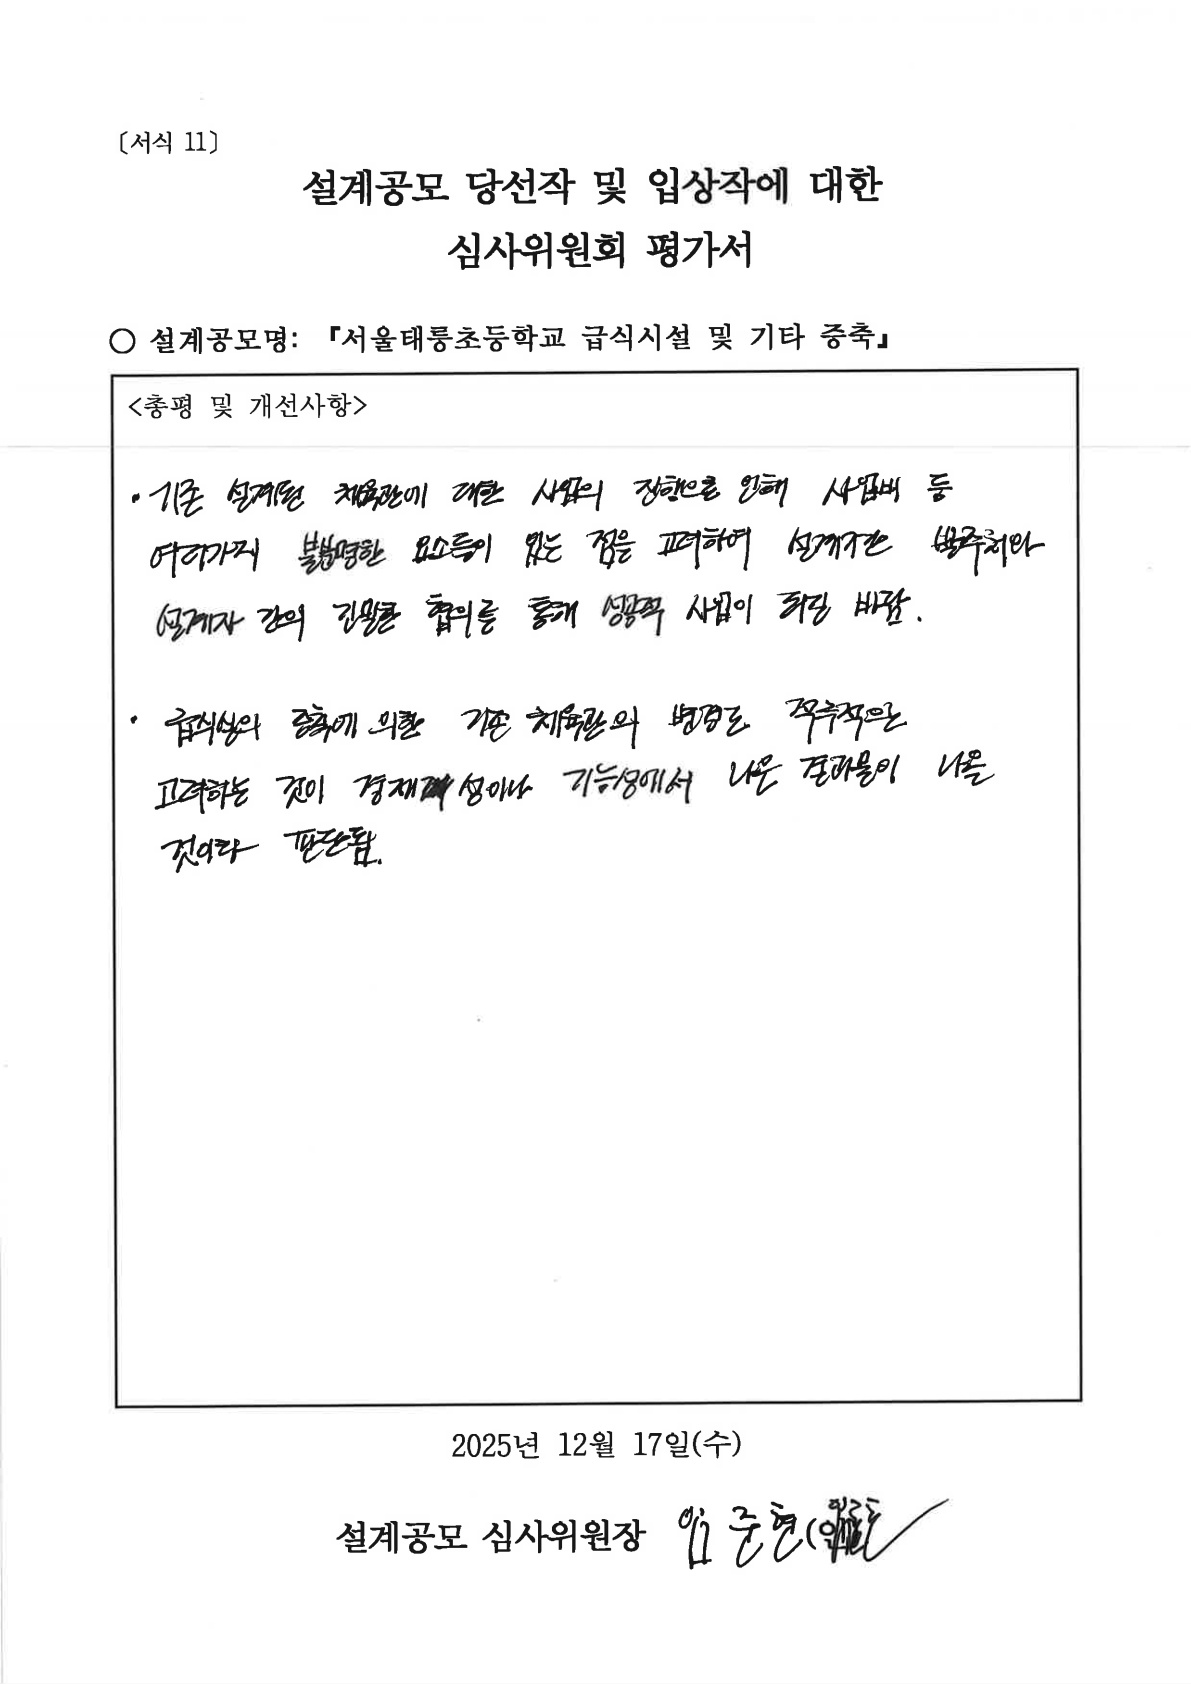 〔서식 11〕
설계공모 당선작 및 입상작에 대한
심사위원회 평가서
○ 설계공모명: 『서울태릉초등학교 급식시설 및 기타 증축』
<총평 및 개선사항>
· 기존 설계된 체육관에 대한 사업의 진행으로 인해 사업비 등
여러가지 불분명한 요소들이 있는 점을 고려하여 발주처와
설계자 간의 긴밀한 협의를 통해 성공적 사업이 되길 바람.
· 급식실의 증축에 의한 기존 체육관의 변경도 적극적으로
고려하는 것이 경제성이나 기능성에서 나은 결과물이 나올
것이라 판단됨.
2025년 12월 17일(수)
설계공모 심사위원장 임준현(